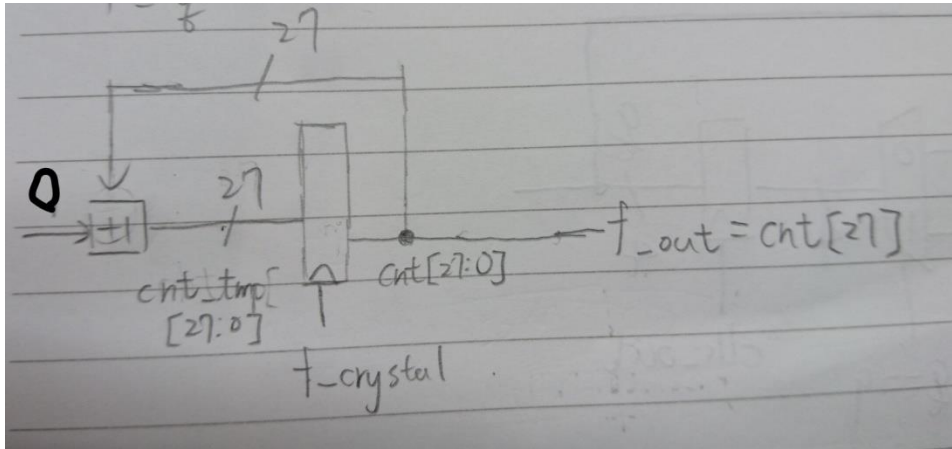 27
0
27
±1
cnt_tmp[
[27:0]
cnt[27:0]
f_out = cnt[27]
f_crystal